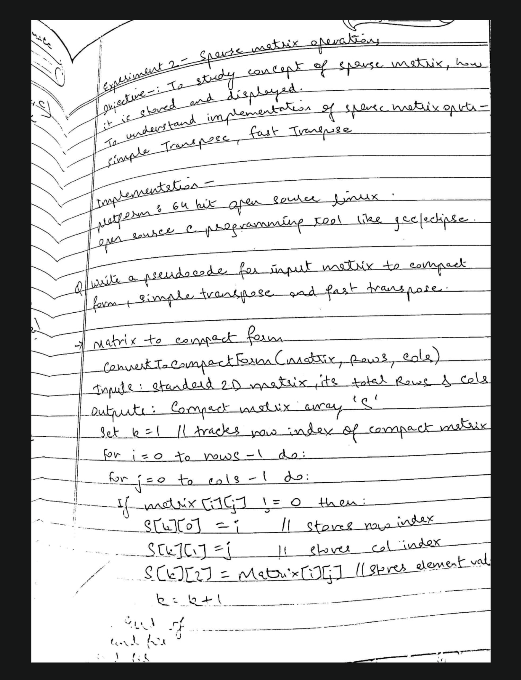 Experiment 2 - Sparse matrix operations
Objective -: To study concept of sparse matrix, how
it is stored and displayed.
To understand implementation of sparse matrix oprts -
simple Transpose, fast Transpose
Implementation -
platform : 64 bit open source Linux .
open source c programming tool like gcc/eclipse.
Q. write a pseudocode for input matrix to compact
form, simple transpose and fast transpose.
→ matrix to compact form
convertToCompactForm (matrix, Rows, cols)
Inputs : standard 2D matrix, its total Rows & cols
outputs : Compact matrix array 'S'
Set k = 1 // tracks row index of compact matrix
for i = 0 to rows - 1 do :
for j = 0 to cols - 1 do :
If matrix [i][j] != 0 then :
S[k][0] = i // stores row index
S[k][1] = j // stores col index
S[k][2] = Matrix[i][j] // stores element val
k = k + 1
end if
end for